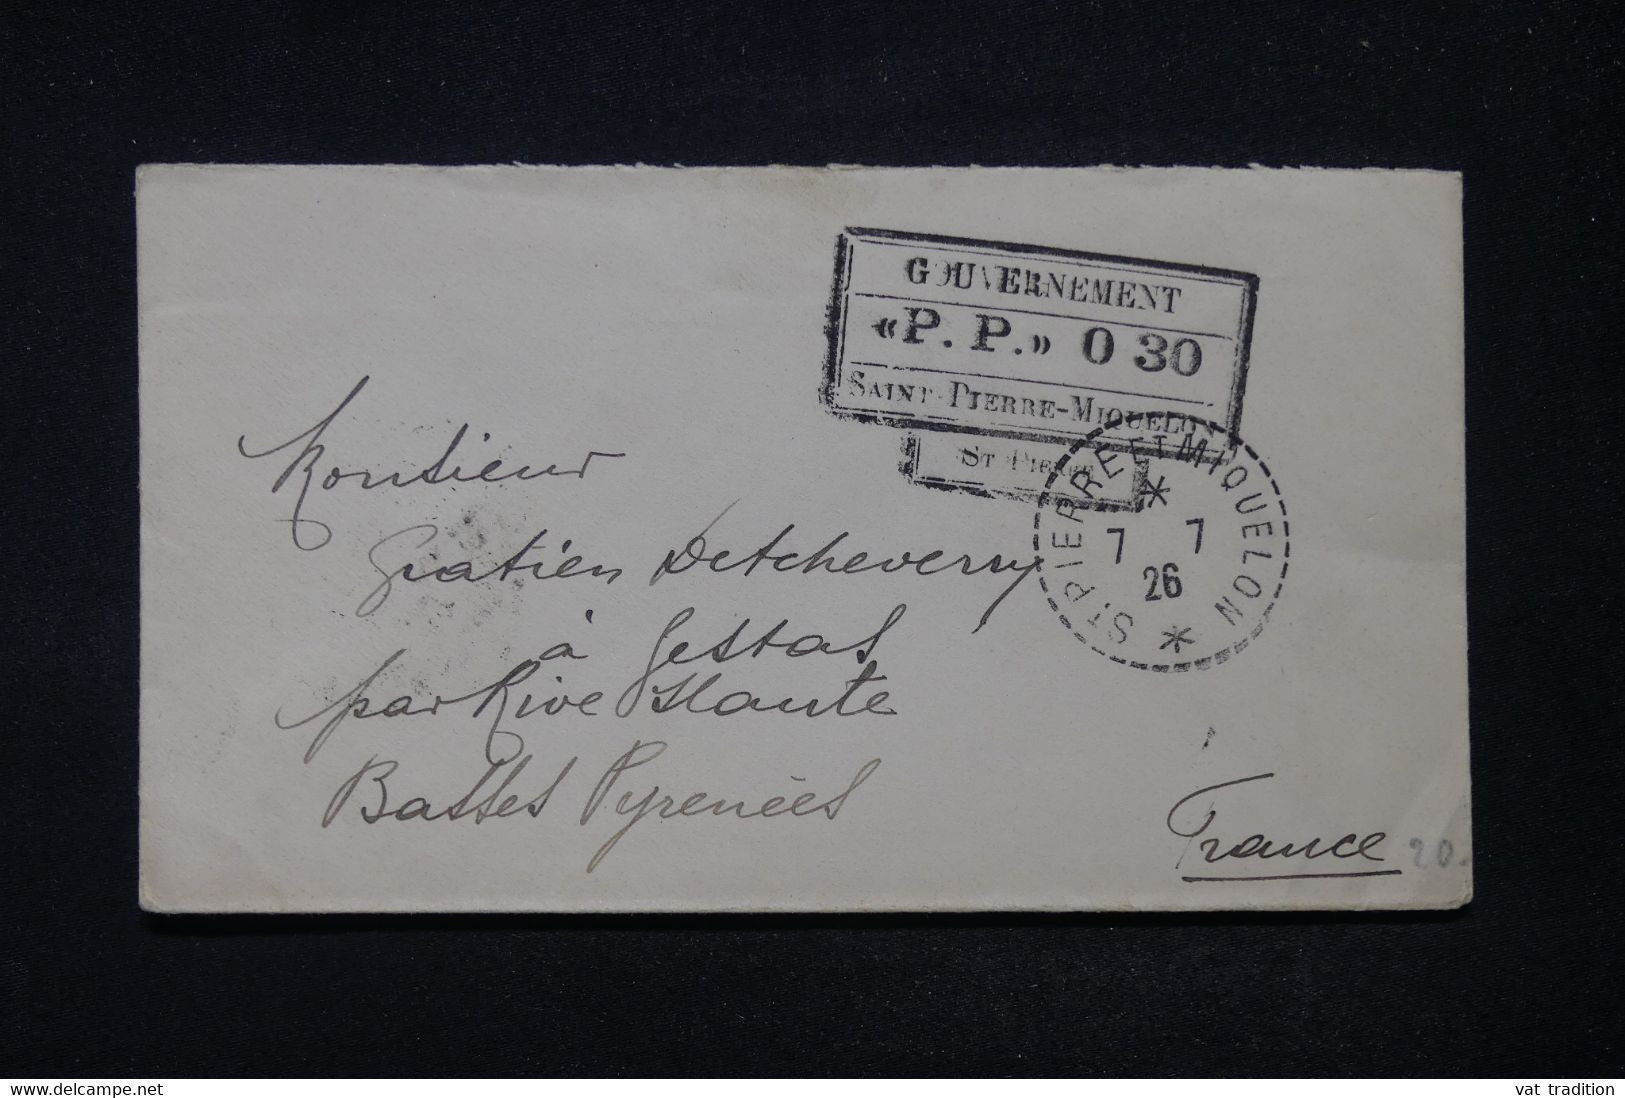 GOUVERNEMENT
«P. P.» 0 30
SAINT-PIERRE-MIQUELON
ST PIERRE
ST. PIERRE ET MIQUELON
7 7
26
Monsieur
Gratien Detcheverry
à Gestas
par Rive Haute
Basses Pyrénées
France
20.
www.delcampe.net
vat tradition